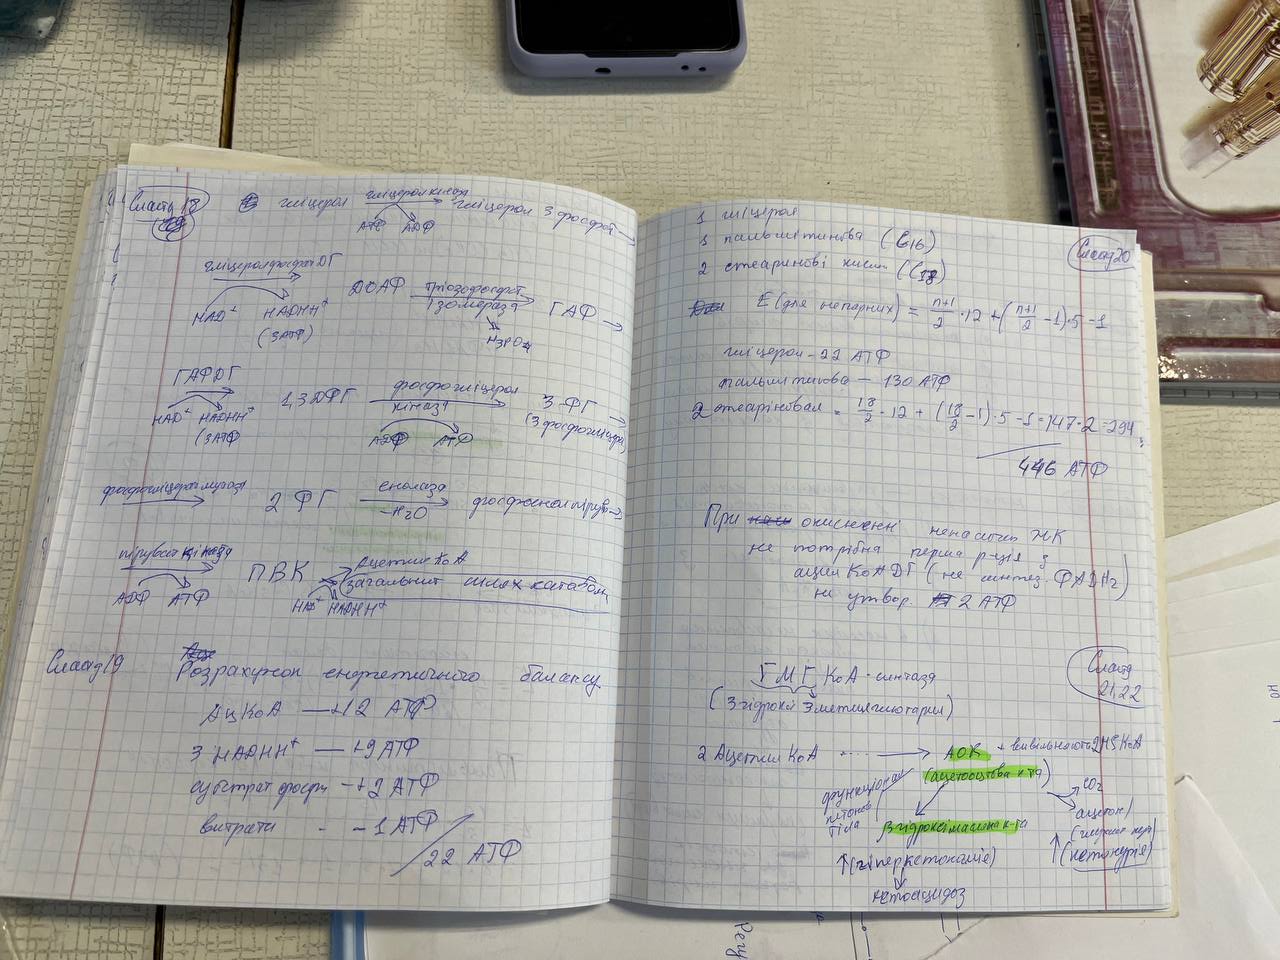 Слайд 18
гліцерол гліцеролкіназа гліцерол 3 фосфат →
АТФ АДФ
гліцеролфосфатДГ ДОАФ тріозофосфат ізомераза ГАФ →
NAD⁺ НАДНН⁺
(3АТФ)
H3PO4
ГАФДГ 1,3 ДФГ фосфогліцерол кіназа 3 ФГ →
NAD⁺ НАДНН⁺
(3АТФ
АДФ АТФ
(3 фосфогліцерат
фосфогліцеромутаза 2 ФГ енолаза фосфоенолпіруват →
-H2O
піруваткіназа ПВК Ацетил КоА
АДФ АТФ
загальний шлях катабол.
НАД⁺ НАДНН⁺
Слайд 19
Розрахунок енергетичного балансу
АцКоА — +12 АТФ
3 НАДНН⁺ — +9 АТФ
субстрат фосф - +2 АТФ
витрати - - 1 АТФ
22 АТФ
1 гліцерол
1 пальмітинова (C16)
2 стеаринові кисл (C18)
Слайд 20
E (для непарних) = n+1/2 · 12 + (n+1/2 - 1) · 5 - 1
гліцерол - 22 АТФ
пальмітинова — 130 АТФ
2 стеарінова = 18/2 · 12 + (18/2 - 1) · 5 - 1 = 147 · 2 = 294
446 АТФ
При окисненні ненасичен ЖК
не потрібна перша р-ція з
ацил КоАДГ (не синтез. ФАДН2)
не утвор. 2 АТФ
Слайд 21,22
ГМГ КоА - синтаза
(3 гідроксі 3 метилглютарил)
2 Ацетил КоА ----> АОК + вивільнюється 2HSKoA
(ацетооцтова к-та)
функціонал
кетонов
тіла
β гідроксімасляна к-та
CO2
ацетон
↑ (кетонурія)
↑ (гіперкетонемія)
кетоацидоз
Регу